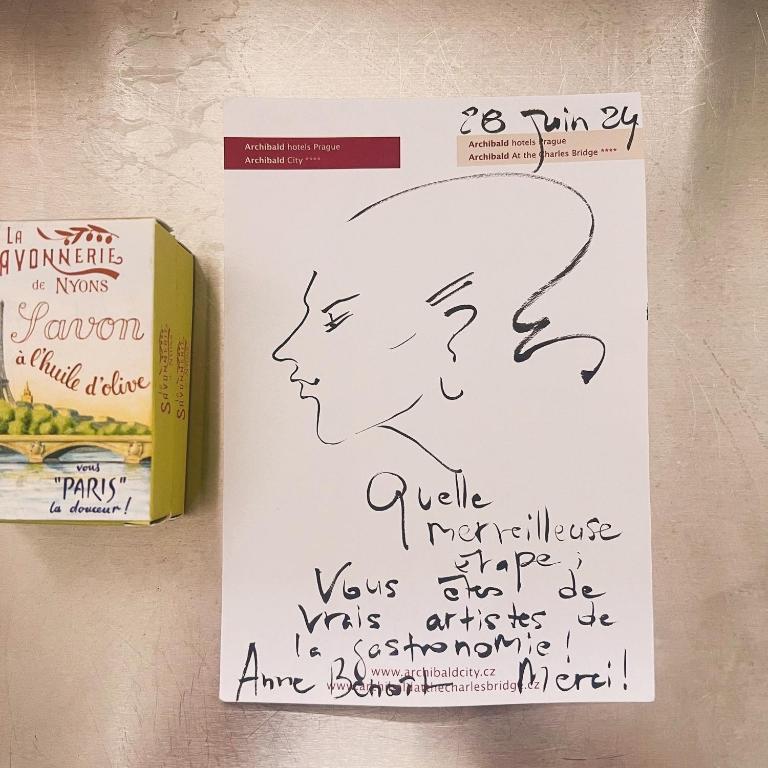 LA
SAVONNERIE
de NYONS
Savon
à l'huile d'olive
vous
"PARIS"
la douceur!
SAVONNERIE
28 Juin 24
Archibald hotels Prague
Archibald City ****
Archibald hotels Prague
Archibald At the Charles Bridge ****
Quelle
merveilleuse
étape;
Vous êtes de
vrais artistes de
la gastronomie!
www.archibaldcity.cz
Anne Benoît Merci!
www.archibaldatthecharlesbridge.cz